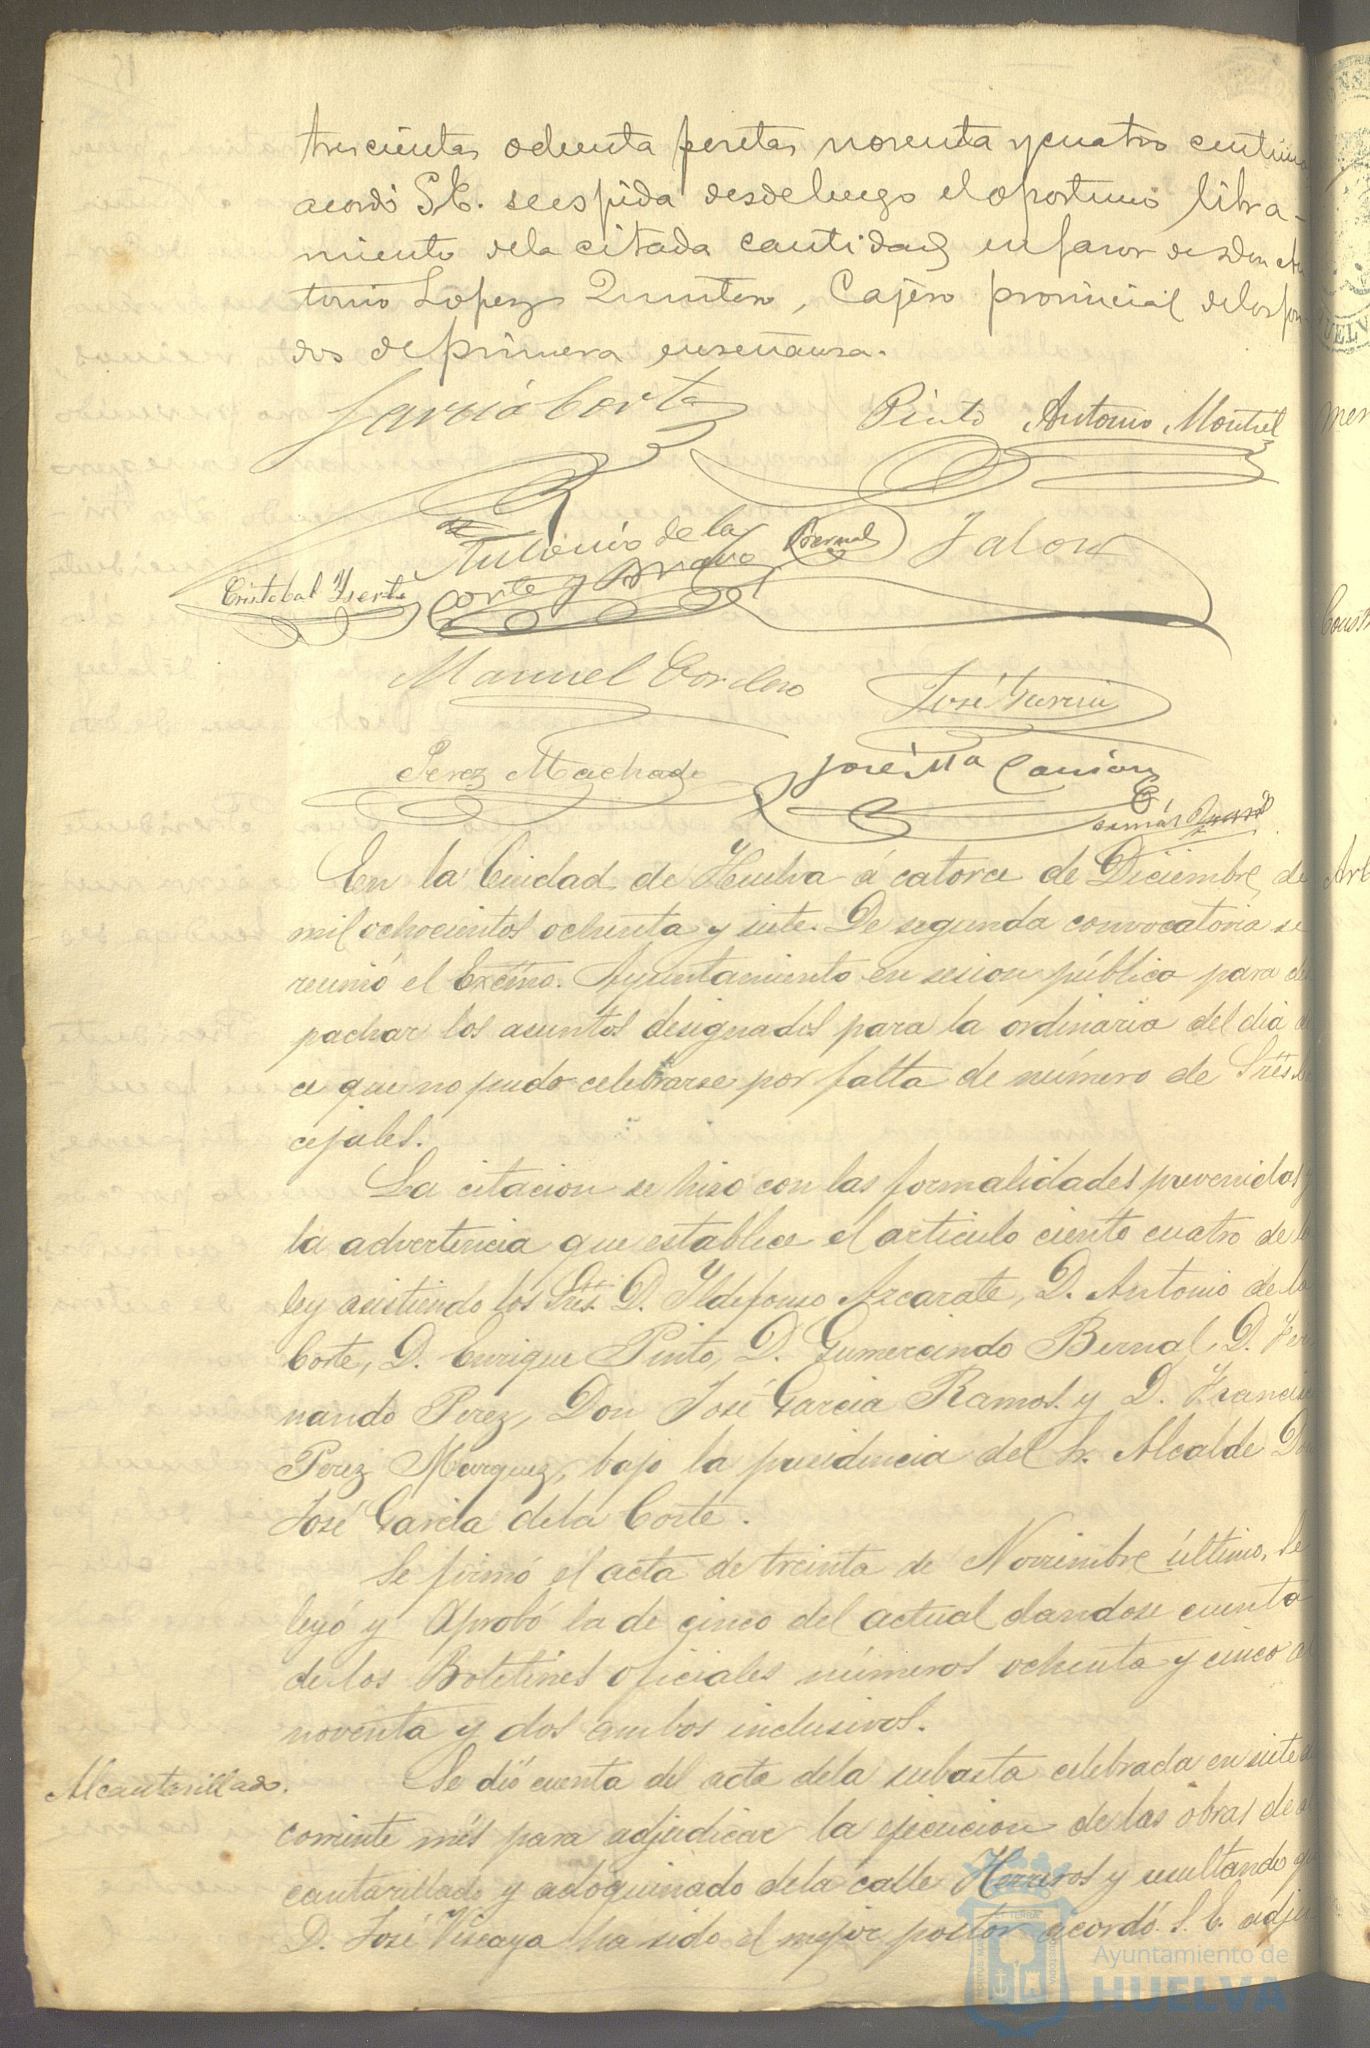 trescientas ochenta pesetas noventa y cuatro centimos
acordó S.E. se espida desde luego el oportuno libra-
miento de la citada cantidad en favor de Don An
tonio Lopez Quintero, Cajero provincial de los fon
dos de primera enseñanza.
Garcia Corte
Pinto Antonio Montiel
Antonio de la
Corte y Bravo
Bernal
Jalon
Cristobal Yserte
Manuel Cordero
José Garcia
Perez Machado
José Ma
En la Ciudad de Huelva á catorce de Diciembre de
mil ochocientos ochenta y siete. De segunda convocatoria se
reunió el Excmo. Ayuntamiento en sesion pública para des
pachar los asuntos designados para la ordinaria del dia do
ce que no pudo celebrarse por falta de número de Sres. Con
cejales.
La citacion se hizo con las formalidades prevenidas y
la advertencia que establece el articulo ciento cuatro de la
ley asistiendo los Sres. D. Ildefonso Azcarate, D. Antonio de la
Corte, D. Enrique Pinto, D. Gumersindo Bernal, D. Fer
nando Perez, Don José Garcia Ramos y D. Francisco
Perez Marquez, bajo la presidencia del Sr. Alcalde Don
José Garcia de la Corte.
Se firmó el acta de treinta de Noviembre último. Se
leyó y aprobó la de cinco del actual dandose cuenta
de los Boletines oficiales números ochenta y cinco al
noventa y dos ambos inclusivos.
Alcantarillado.
Se dió cuenta del acta de la subasta celebrada en siete del
corriente més para adjudicar la ejecucion de las obras de al
cantarillado y adoquinado de la calle Herreros y resultando que
D. José Viscaya ha sido el mejor postor acordó S.E. adju
Ayuntamiento de
HUELVA